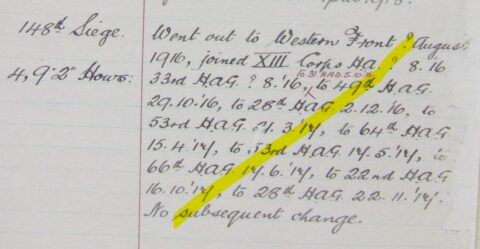 148th Siege.
4, 9'2" Hows:
Went out to Western Front ? August
1916, joined XIII Corps H.A. ? 8.'16
to 31 H.A.G. 5.10.16
33rd H.A.G. ? 8.'16, to 49th H.A.G.
29.10.'16, to 28th H.A.G. 2.12.16, to
53rd H.A.G. 21.3.'17, to 64th H.A.G.
15.4.'17, to 53rd H.A.G. 14.5.'17, to
66th H.A.G. 14.6.'17, to 22nd H.A.G.
16.10.'17, to 28th H.A.G. 22.11.'17.
No subsequent change.